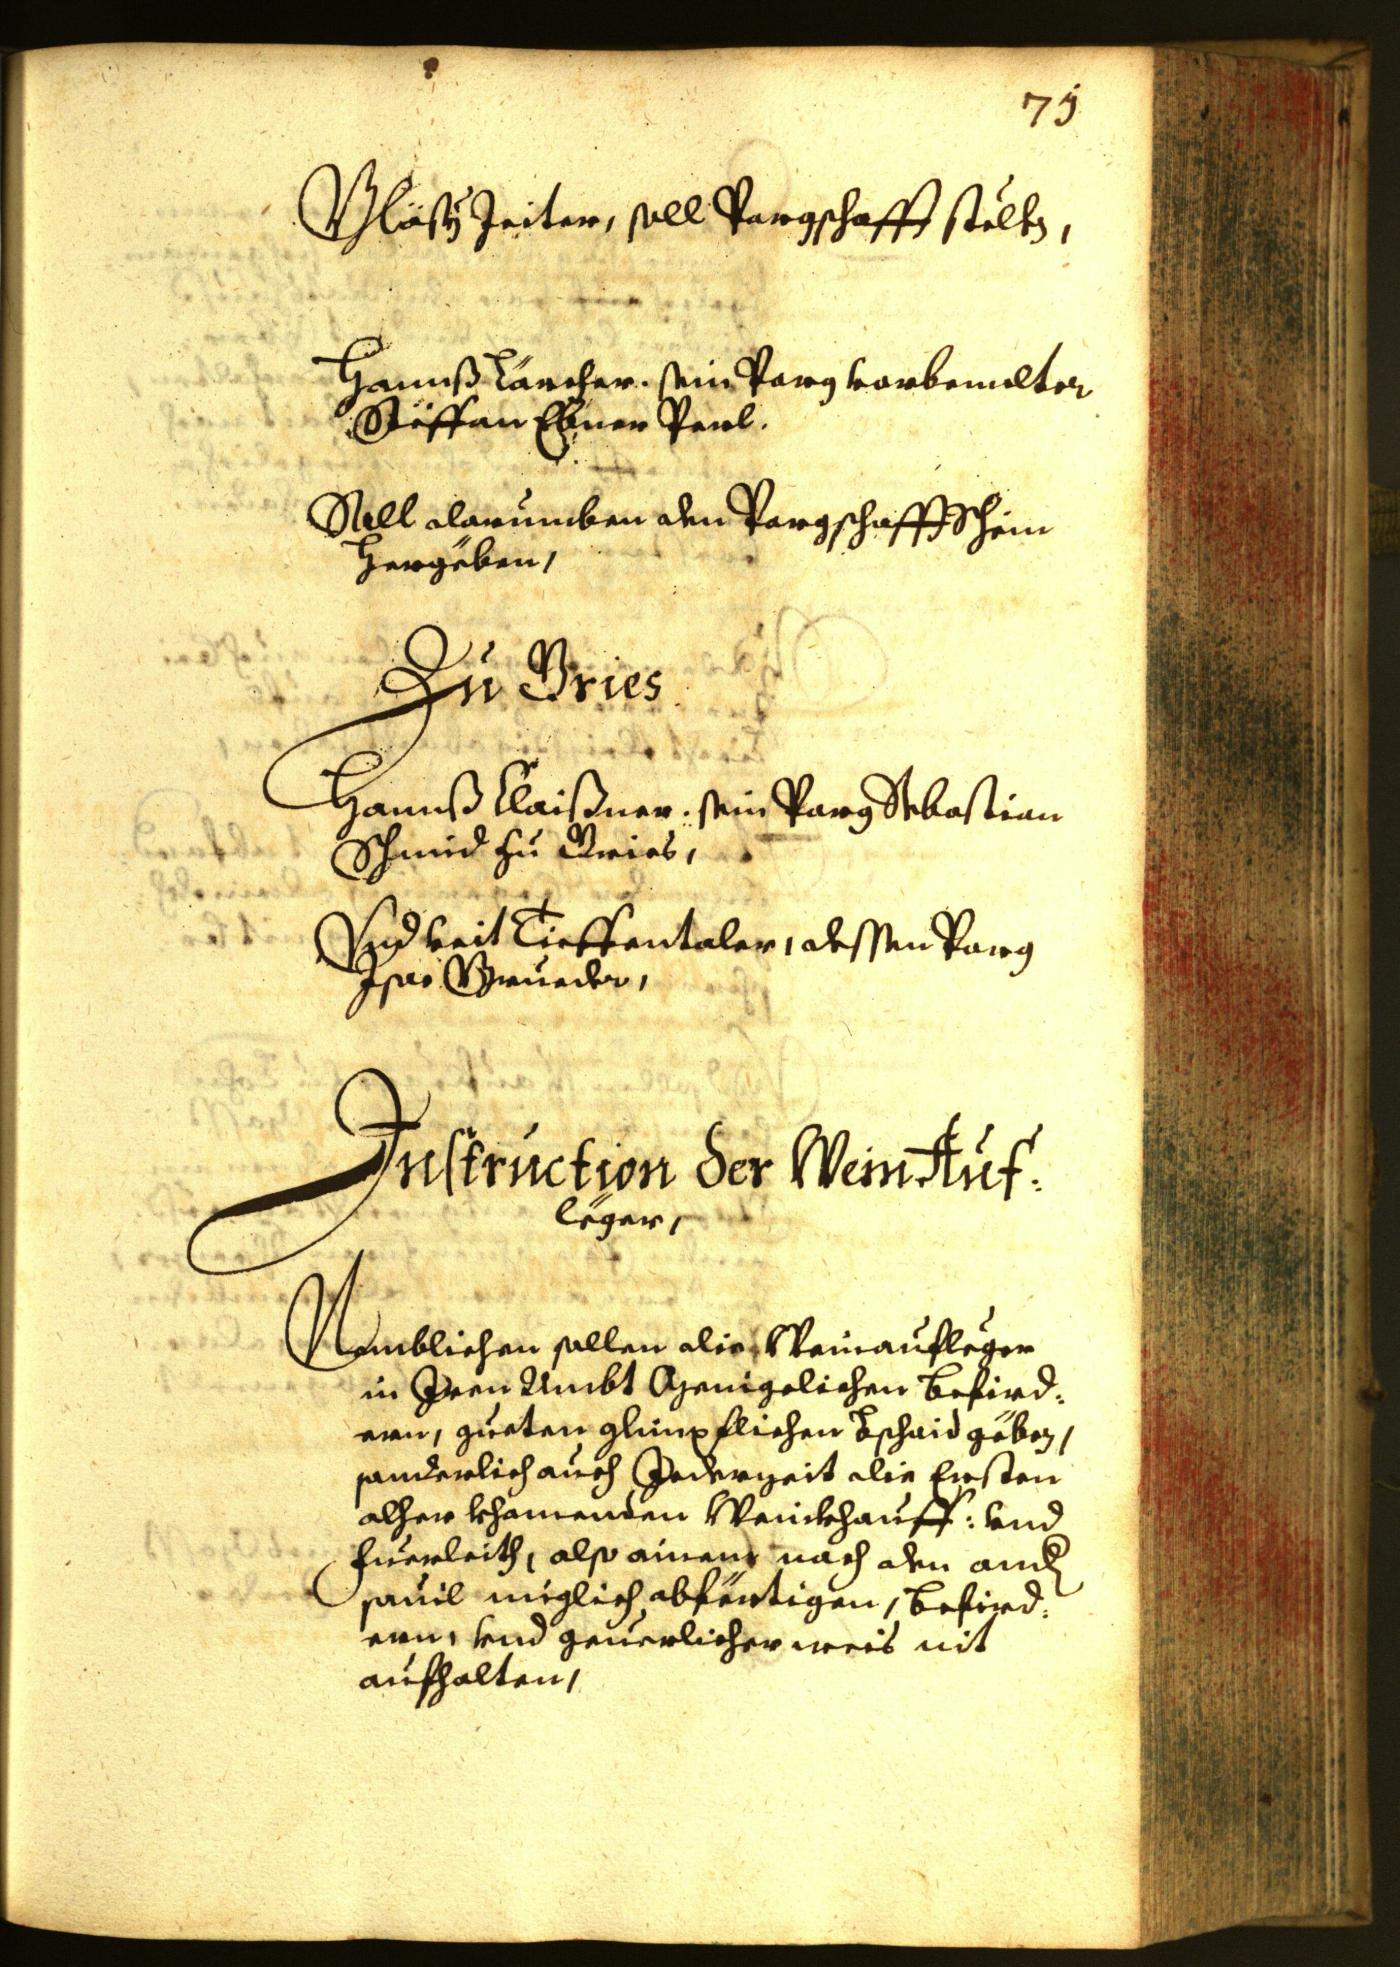 75
Bläsÿ Zeiter, soll Porgschafft stellen,
Hannß Lärcher. sein Porg vorbemelter
Steffan Ebner Perl.
Soll darumben den Porgschafft Schein
hergeben,
Zu Gries
Hannß Claißner. sein Porg Sebastian
Schmid zu Gries,
Vnd veit Tieffentaler, dessen Porg
Isac Brueder,
Instruction der Wein Auf:
leger,
Nemblichen sollen die Weinaufleger
in Iren Ambt Menigclichen befird:
ern, gueten glimpflichen bschaid geben,
sonderlich auch Jederzeit die Ersten
alher khomenden Weinkhauff: vnd
fuerleith, also ainem nach den andern
souil müglich abfertigen, befird:
ern, vnd geuerlicher weis nit
aufhalten,